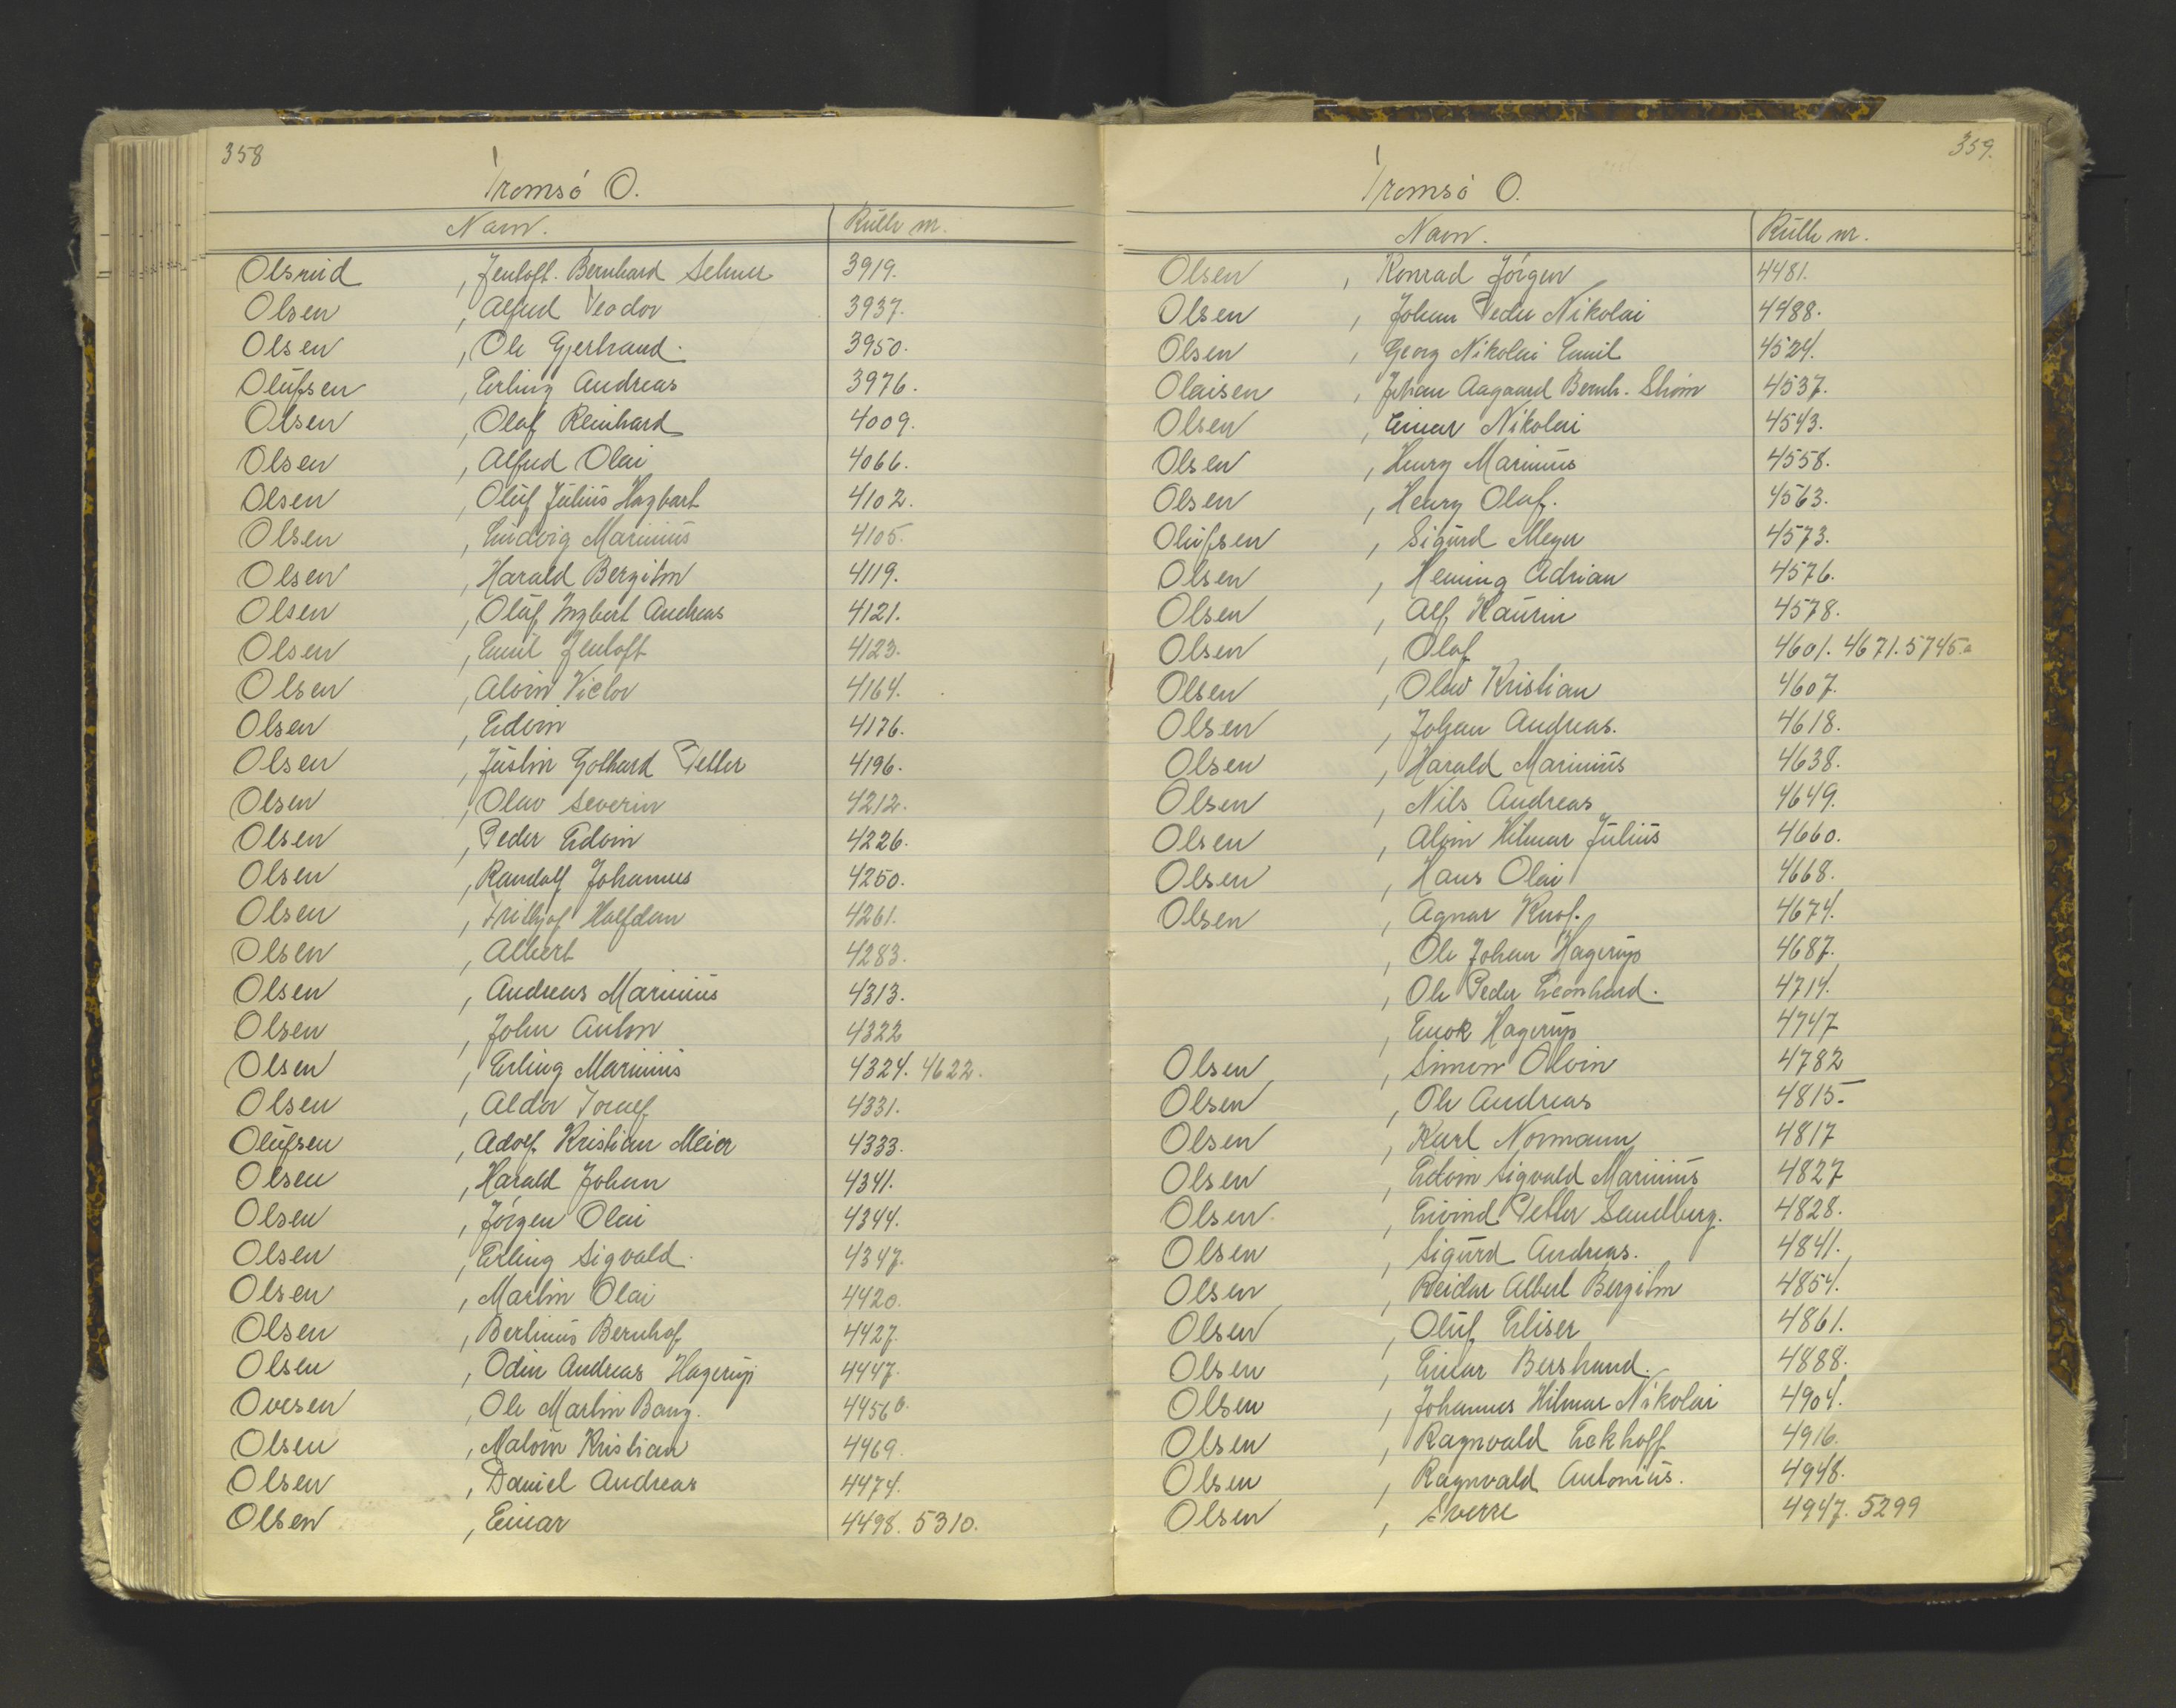 358
Tromsö O.
Navn. Rulle nr.
Olsrud , Jentoft. Bernhard Selmer 3919.
Olsen , Alfred Teodor 3937.
Olsen , Ole Gjerhard. 3950.
Olufsen , Erling Andreas 3976.
Olsen , Olaf Reinhard 4009.
Olsen , Alfred Olai 4066.
Olsen , Oluf Julius Hagbart 4102.
Olsen , Ludvig Marinius 4105.
Olsen , Harald Bergiton 4119.
Olsen , Oluf Ingbert Andreas 4121.
Olsen , Emil Jentoft 4123.
Olsen , Alvin Victor 4164.
Olsen , Edvin 4176.
Olsen , Justin Gothard Petter 4196.
Olsen , Olav Severin 4212.
Olsen , Peder Edvin 4226.
Olsen , Randolf Johannes 4250.
Olsen , Frithjof Halfdan 4261.
Olsen , Albert 4283.
Olsen , Andreas Marinius 4313.
Olsen , John Anton 4322
Olsen , Erling Marinius 4324. 4622.
Olsen , Aldor 4331.
Olufsen , Adolf Kristian Meier 4333.
Olsen , Harald Johan 4341.
Olsen , Jörgen Olai 4344.
Olsen , Erling Sigvald. 4347.
Olsen , Martin Olai 4420.
Olsen , Bertinus Bernhof 4427.
Olsen , Odin Andreas Hagerup 4447.
Ovesen , Ole Martin Bang. 4456 b.
Olsen , Malvin Kristian 4469.
Olsen , Daniel Andreas 4474.
Olsen , Einar 4498. 5310.
359.
Tromsö O.
Navn. Rulle nr.
Olsen , Konrad Jörgen 4481.
Olsen , Johan Peder Nikolai 4488.
Olsen , Georg Nikolai Emil 4524.
Olaisen , Johan Aagaard Bernh. Ström 4537.
Olsen , Einar Nikolai 4543.
Olsen , Henry Marinius 4558.
Olsen , Henry Olaf. 4563.
Olufsen , Sigurd Meyer 4573.
Olsen , Heming Adrian 4576.
Olsen , Alf Kaurin 4578.
Olsen , Olaf 4601. 4671. 5745.a
Olsen , Olav Kristian 4607.
Olsen , Johan Andreas. 4618.
Olsen , Harald Marinius 4638.
Olsen , Nils Andreas 4649.
Olsen , Alvin Hilmar Julius 4660.
Olsen , Hans Olai 4668.
Olsen , Agnar Knof. 4674.
, Ole Johan Hagerup 4687.
, Ole Peder Leonhard. 4714.
, Enok Hagerup 4747
Olsen , Simon Olvin 4782
Olsen , Ole Andreas 4815.
Olsen , Karl Normann 4817
Olsen , Edvin Sigvald Marinius 4827
Olsen , Eivind Petter Sandberg. 4828.
Olsen , Sigurd Andreas. 4841.
Olsen , Reidar Albert Bergiton 4854.
Olsen , Oluf Eliser 4861.
Olsen , Einar Bershand. 4888.
Olsen , Johannes Hilmar Nikolai 4904.
Olsen , Ragnvald Eckhoff 4916.
Olsen , Ragnvald Antonius. 4948.
Olsen , Sverre 4947. 5299